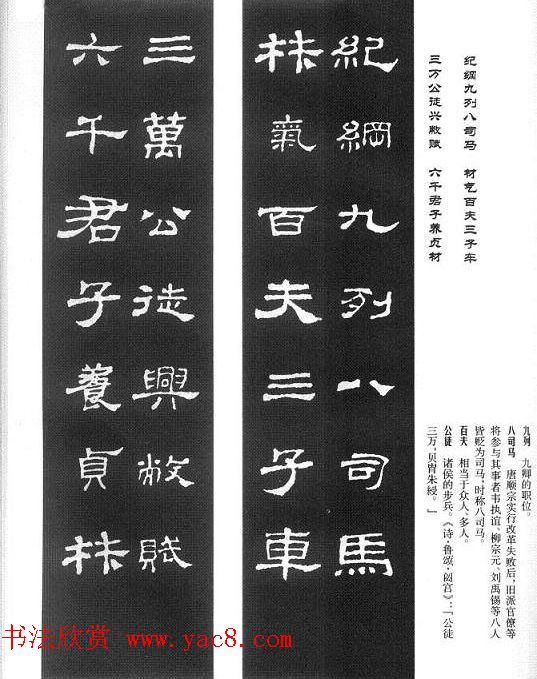 纪纲九列八司马　材气百夫三子车
三万公徒兴敝赋　六千君子养贞材
紀綱九列八司馬
材氣百夫三子車
三萬公徒興敝賦
六千君子養貞材
九列　九卿的职位。
八司马　唐顺宗实行改革失败后，旧派官僚等
将参与其事者韦执谊、柳宗元、刘禹锡等八人
皆贬为司马，时称八司马。
百夫　相当于众人、多人。
公徒　诸侯的步兵。《诗·鲁颂·閟宫》：「公徒
三万，贝胄朱綅。」
书法欣赏 www.yac8.com